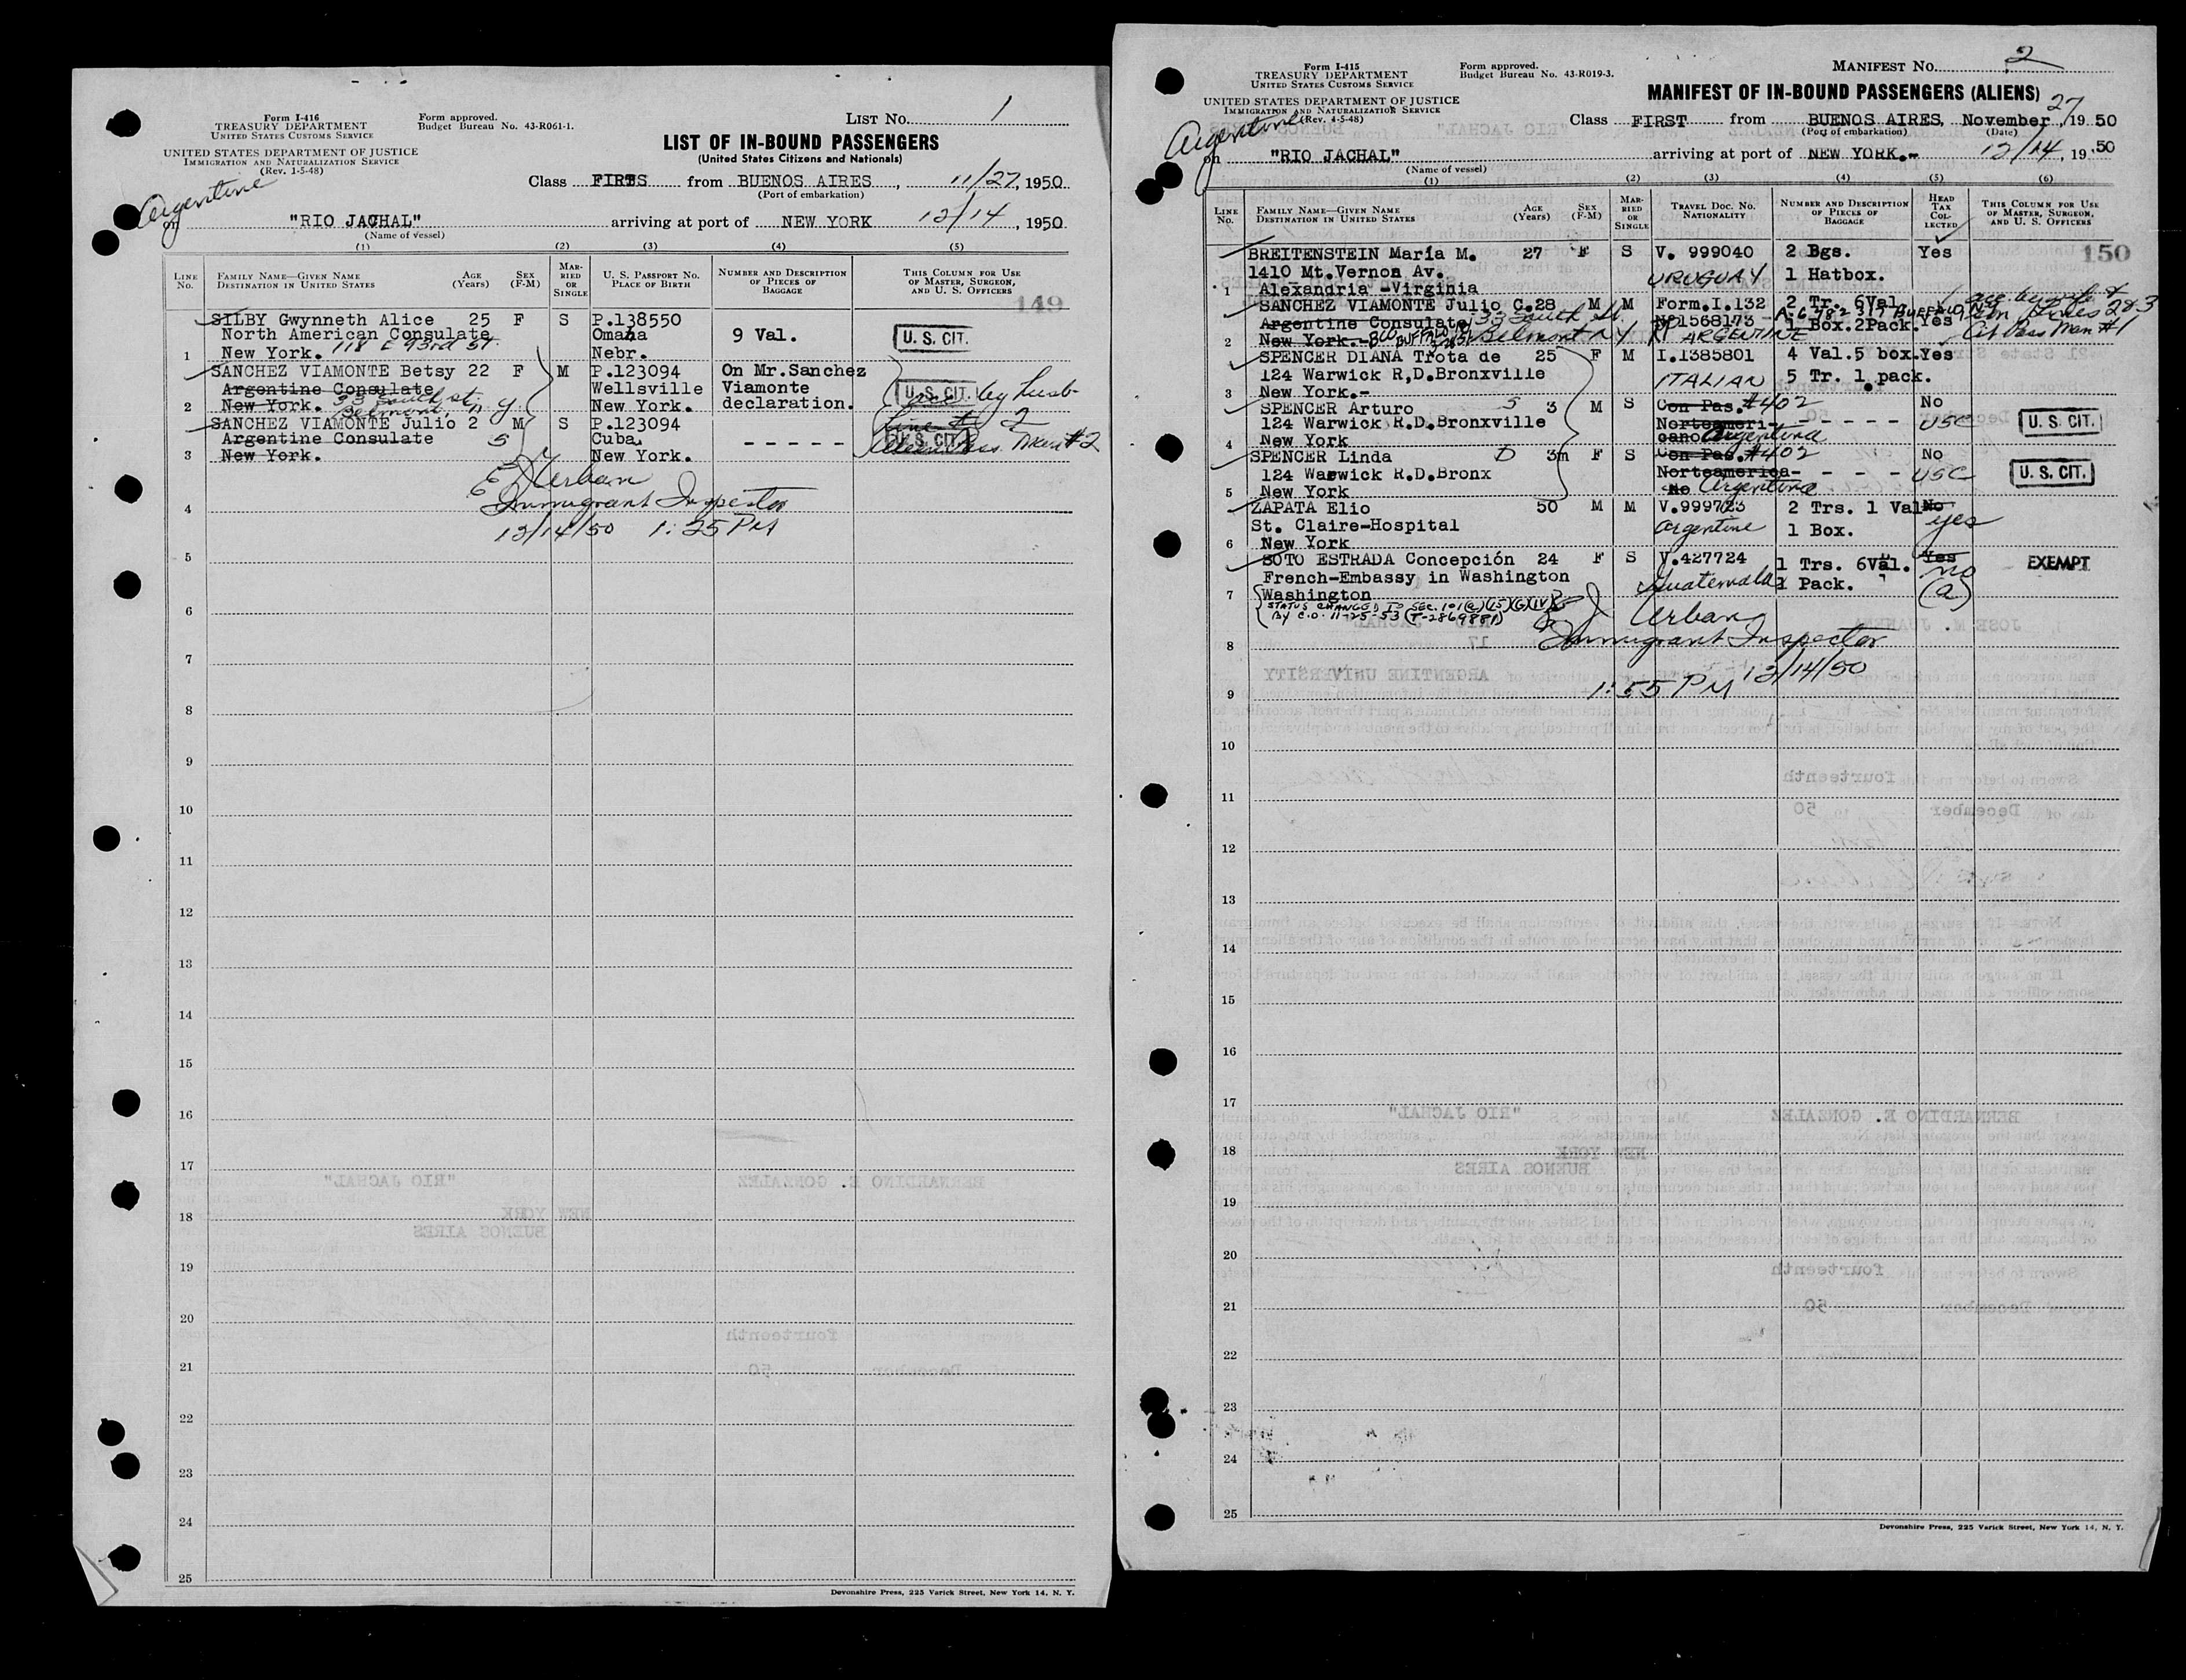 Form I-416
TREASURY DEPARTMENT
UNITED STATES CUSTOMS SERVICE
UNITED STATES DEPARTMENT OF JUSTICE
IMMIGRATION AND NATURALIZATION SERVICE
(Rev. 1-5-48)
Form approved.
Budget Bureau No. 43-R061-1.
LIST No. 1
LIST OF IN-BOUND PASSENGERS
(United States Citizens and Nationals)
Class FIRTS from BUENOS AIRES, 11/27, 1950
(Port of embarkation)
Argentine
on "RIO JACHAL" arriving at port of NEW YORK 12/14, 1950
(Name of vessel)
(1) (2) (3) (4) (5)
LINE No. FAMILY NAME—GIVEN NAME DESTINATION IN UNITED STATES AGE (Years) SEX (F-M) MARRIED OR SINGLE U. S. PASSPORT NO. PLACE OF BIRTH NUMBER AND DESCRIPTION OF PIECES OF BAGGAGE THIS COLUMN FOR USE OF MASTER, SURGEON, AND U. S. OFFICERS
149
SILBY Gwynneth Alice 25 F S P.138550
North American Consulate Omaha 9 Val. U. S. CIT.
1 New York. 118 E 93rd St. Nebr.
SANCHEZ VIAMONTE Betsy 22 F M P.123094 On Mr.Sanchez
Argentine Consulate Wellsville Viamonte U. S. CIT. by husb
2 New York. 33 South st. Belmont, N Y New York. declaration. line # 2
SANCHEZ VIAMONTE Julio 2 M S P.123094
Argentine Consulate 5 Cuba, - - - - - U. S. CIT. Pass Man #2
3 New York. New York.
E J Urban
4 Immigrant Inspector
12/14/50 1:25 PM
5
6
7
8
9
10
11
12
13
14
15
16
17
18
19
20
21
22
23
24
25
Devonshire Press, 225 Varick Street, New York 14, N. Y.
Form I-415
TREASURY DEPARTMENT
UNITED STATES CUSTOMS SERVICE
UNITED STATES DEPARTMENT OF JUSTICE
IMMIGRATION AND NATURALIZATION SERVICE
(Rev. 4-5-48)
Form approved.
Budget Bureau No. 43-R019-3.
MANIFEST No. 2
MANIFEST OF IN-BOUND PASSENGERS (ALIENS)
Class FIRST from BUENOS AIRES, November 27, 19 50
(Port of embarkation) (Date)
Argentine
on "RIO JACHAL" arriving at port of NEW YORK.- 12/14, 19 50
(Name of vessel)
(1) (2) (3) (4) (5) (6)
LINE No. FAMILY NAME—GIVEN NAME DESTINATION IN UNITED STATES AGE (Years) SEX (F-M) MARRIED OR SINGLE TRAVEL DOC. NO. NATIONALITY NUMBER AND DESCRIPTION OF PIECES OF BAGGAGE HEAD TAX COLLECTED THIS COLUMN FOR USE OF MASTER, SURGEON, AND U. S. OFFICERS
150
BREITENSTEIN María M. 27 F S V. 999040 2 Bgs. Yes
1410 Mt.Vernon Av. URUGUAY 1 Hatbox.
1 Alexandria -Virginia
SANCHEZ VIAMONTE Julio C.28 M M Form.I.132 2 Tr. 6Val.
Argentine Consulate 33 South St. Nº1568173 - A-6 782 317 BUFFALO 1 Box.2Pack. Yes lines 2&3
2 New York.- Belmont N Y ARGENTINE Cit Pass Man #1
SPENCER DIANA Trota de 25 F M I.1385801 4 Val.5 box. Yes
124 Warwick R,D.Bronxville ITALIAN 5 Tr. 1 pack.
3 New York.-
SPENCER Arturo 5 3 M S Con Pas. #402 No
124 Warwick R.D.Bronxville Norteameri- - - - - - USC U. S. CIT.
4 New York cano Argentina
SPENCER Linda D 3m F S Con Pas. #402 No
124 Warwick R.D.Bronx Norteamerica- - - - - USC U. S. CIT.
5 New York no Argentina
ZAPATA Elio 50 M M V.999723 2 Trs. 1 Val No
St. Claire-Hospital Argentine 1 Box. yes
6 New York
SOTO ESTRADA Concepción 24 F S V.427724 1 Trs. 6Val. Yes EXEMPT
French-Embassy in Washington Guatemala 1 Pack. no
7 Washington (a)
STATUS CHANGED TO SEC. 101(a)(15)(G)(IV)
By C.O. 11-25-53 (T-2869881)
E J Urban
8 Immigrant Inspector
12/14/50
9 1:55 PM
10
11
12
13
14
15
16
17
18
19
20
21
22
23
24
25
Devonshire Press, 225 Varick Street, New York 14, N. Y.